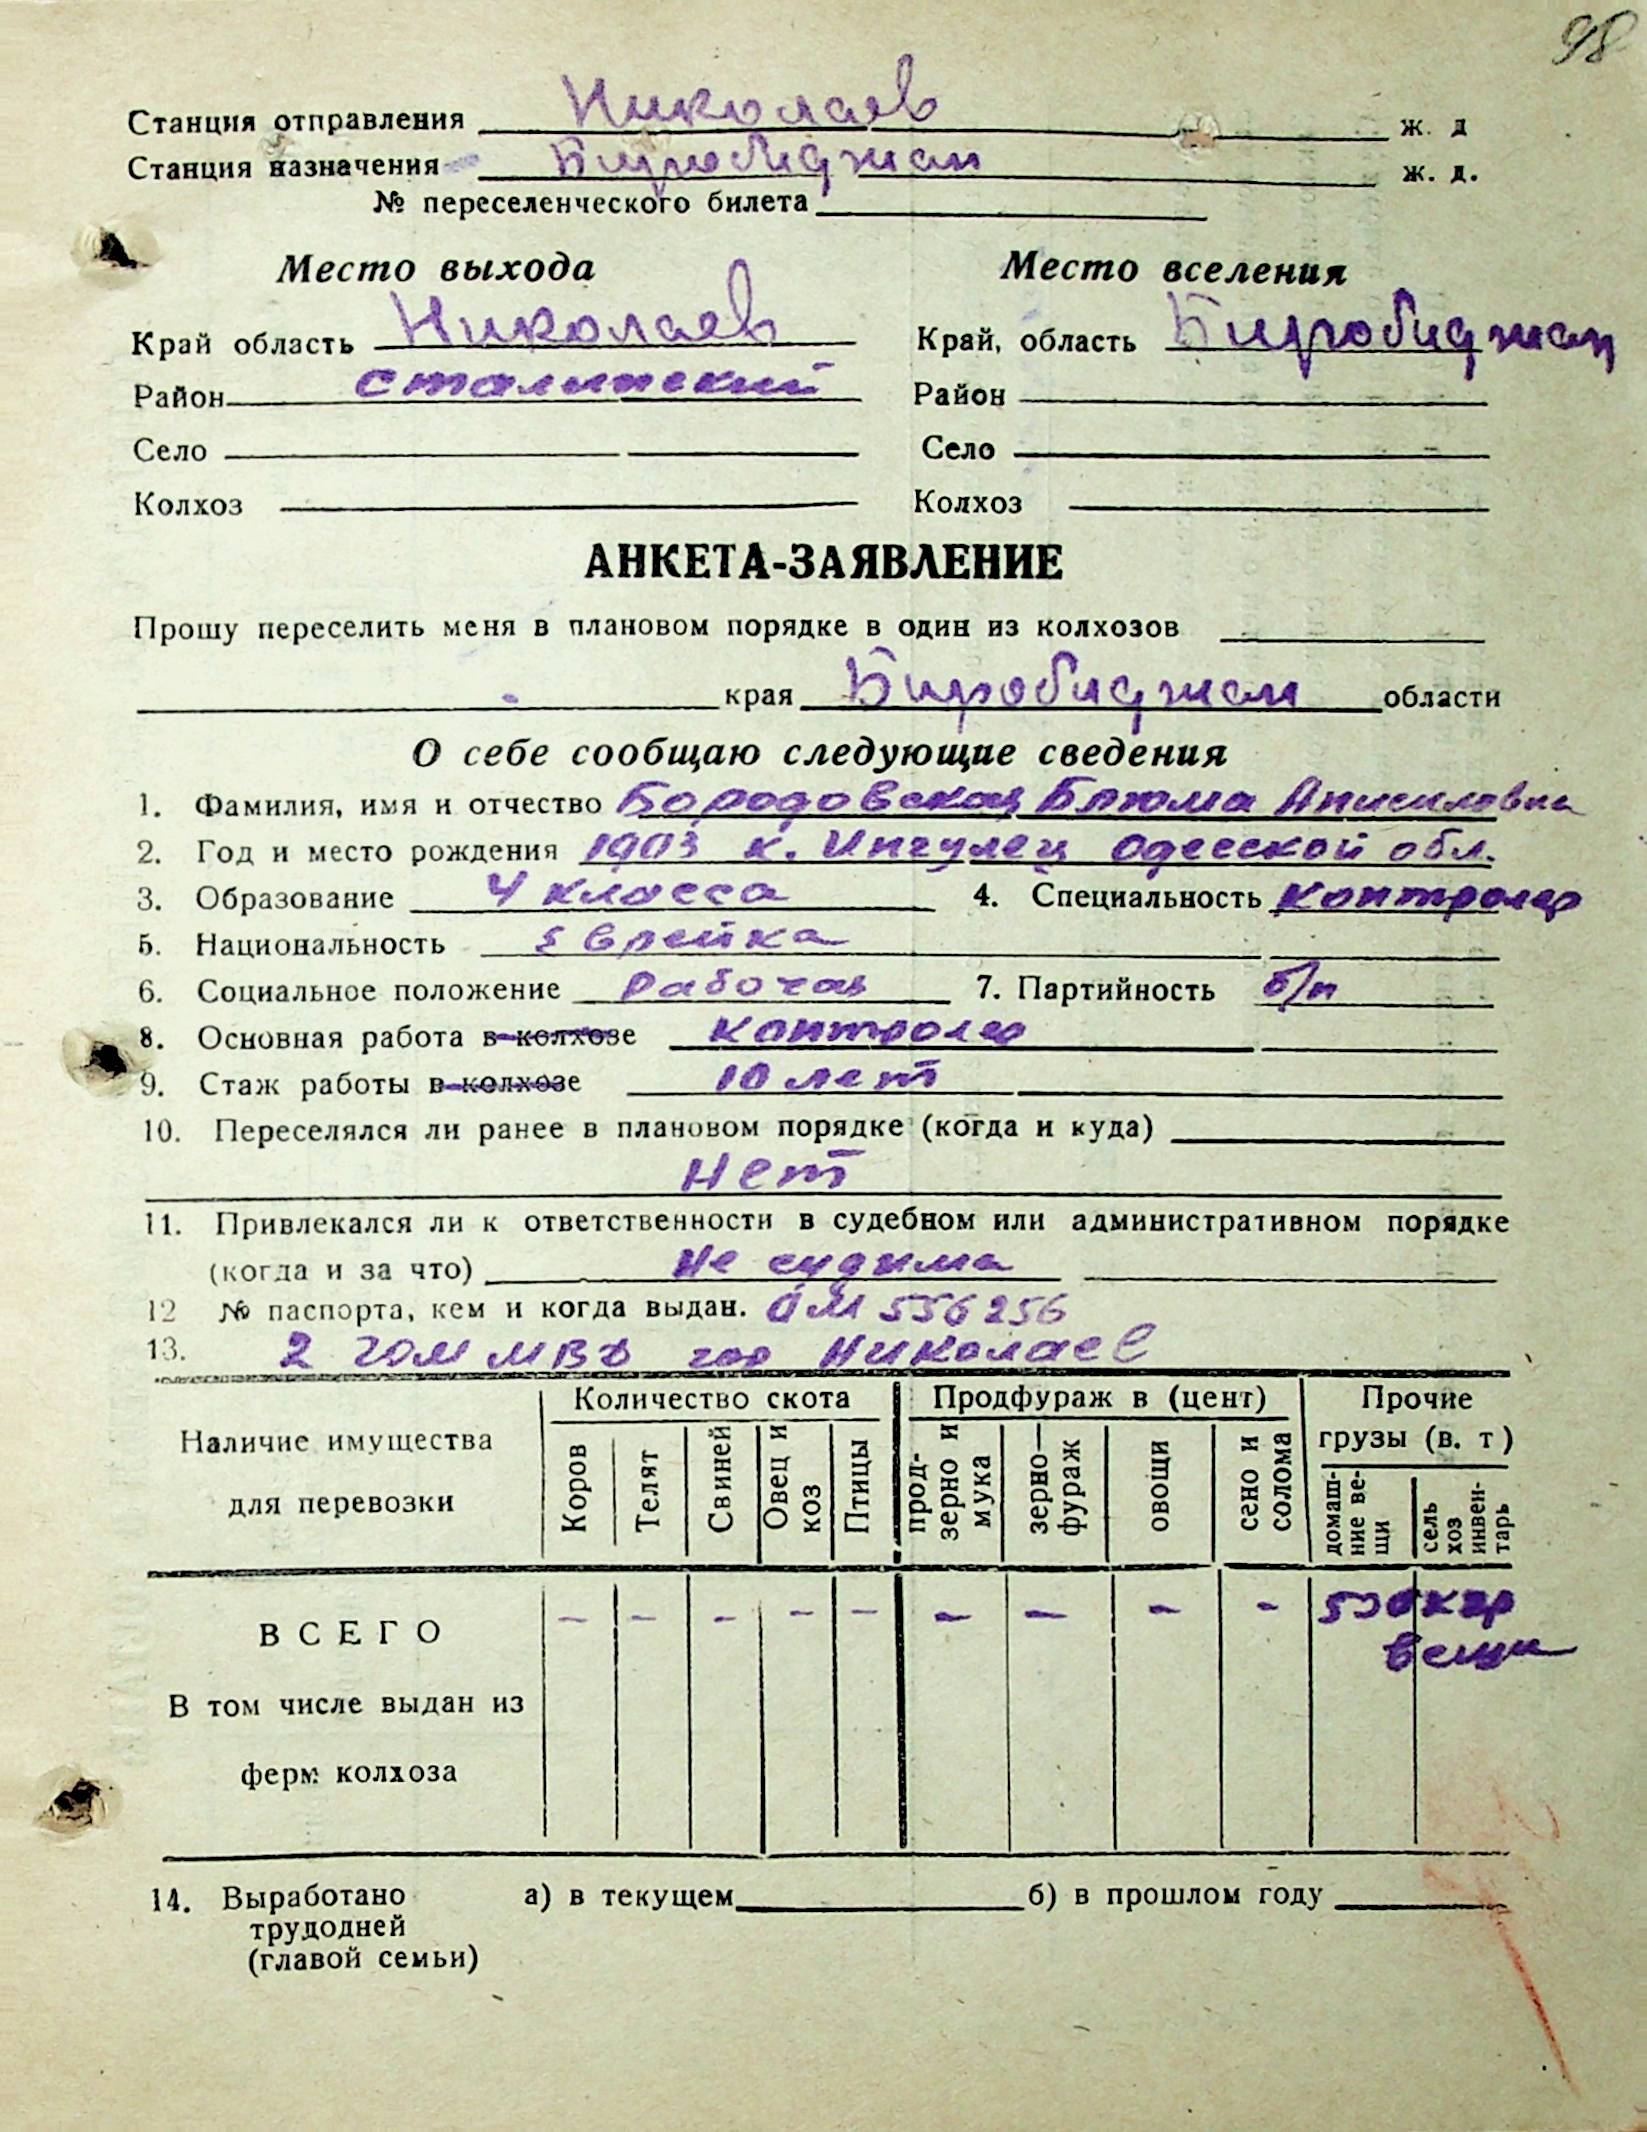 98
Станция отправления Николаев ж. д
Станция назначения Биробиджан ж. д.
№ переселенческого билета
Место выхода Место вселения
Край область Николаев Край, область Биробиджан
Район Сталинский Район
Село Село
Колхоз Колхоз
АНКЕТА-ЗАЯВЛЕНИЕ
Прошу переселить меня в плановом порядке в один из колхозов
края Биробиджан области
О себе сообщаю следующие сведения
1. Фамилия, имя и отчество Бородовская Блюма
2. Год и место рождения 1903 к. Ингулец Одесской обл.
3. Образование 4 класса 4. Специальность контролер
5. Национальность Еврейка
6. Социальное положение Рабочая 7. Партийность б/п
8. Основная работа в колхозе контролер
9. Стаж работы в колхозе 10 лет
10. Переселялся ли ранее в плановом порядке (когда и куда)
Нет
11. Привлекался ли к ответственности в судебном или административном порядке
(когда и за что) Не судима
12 № паспорта, кем и когда выдан. 556256
13. 2 гом МВД гор Николаев
Количество скота Продфураж в (цент) Прочие
Наличие имущества грузы (в. т)
для перевозки Коров Телят Свиней Овец и коз Птицы прод-зерно и мука зерно—фураж овощи сено и солома домаш-ние ве-щи сель хоз инвен-тарь
ВСЕГО - - - - - - - - - 530 кгр
вещи
В том числе выдан из
ферм колхоза
14. Выработано а) в текущем б) в прошлом году
трудодней
(главой семьи)